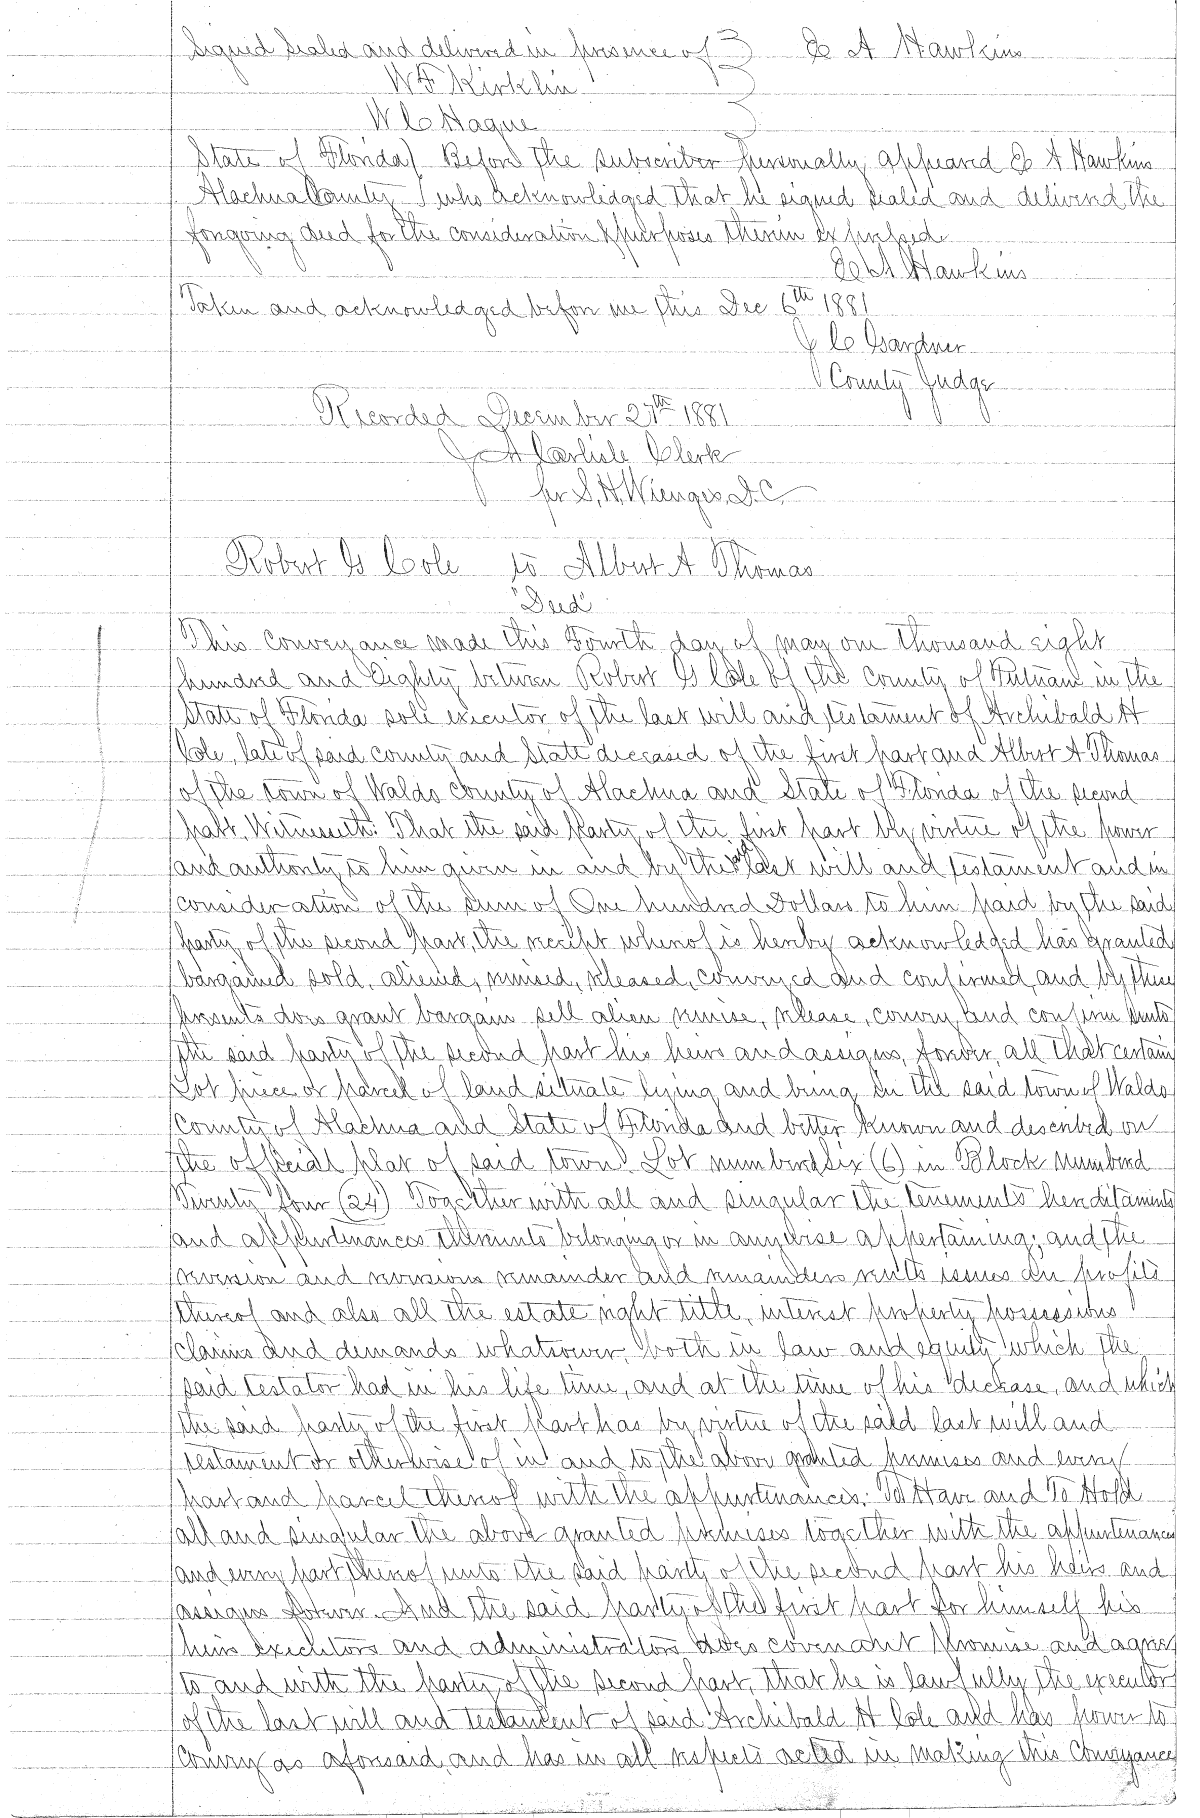 Signed Sealed and delivered in presence of } E A Hawkins
W F Kirklin
W C Hague
State of Florida } Before the subscriber personally appeared E A Hawkins
Alachua County } who acknowledged that he signed sealed and delivered the
foregoing deed for the consideration & purposes therein expressed
E A Hawkins
Taken and acknowledged before me this Dec 6th 1881
J C Gardner
County Judge
Recorded December 27th 1881
J A Carlisle Clerk
per S. H. Wienges, D.C.
Robert G Cole to Albert A Thomas
"Deed"
This Conveyance made this Fourth day of may one thousand eight
hundred and Eighty between Robert G Cole of the County of Putnam in the
State of Florida sole executor of the last will and testament of Archibald H
Cole, late of said county and State deceased of the first part and Albert A Thomas
of the town of Waldo County of Alachua and State of Florida of the second
part, Witnesseth: That the said party of the first part by virtue of the power
and authority to him given in and by the said last will and testament and in
consideration of the sum of One hundred Dollars to him paid by the said
party of the second part, the receipt whereof is hereby acknowledged has granted
bargained sold, aliened, remised, released, conveyed and confirmed, and by these
presents does grant bargain sell alien remise, release, convey and confirm unto
the said party of the second part his heirs and assigns, forever, all that certain
Lot piece or parcel of land situate lying and being in the said town of Waldo
County of Alachua and State of Florida and better known and described on
the official plat of said town Lot numbered Six (6) in Block numbered
Twenty four (24) Together with all and singular the tenements hereditaments
and appurtenances thereunto belonging or in anywise appertaining; and the
reversion and reversions remainder and remainders rents issues an profits
thereof and also all the estate right title, interest property possessions
claims and demands whatsoever, both in law and equity which the
said testator had in his life time, and at the time of his decease, and which
the said party of the first part has by virtue of the said last will and
testament or otherwise of in and to, the above granted premises and every
part and parcel thereof with the appurtenances; To Have and To Hold
all and singular the above granted premises together with the appurtenances
and every part thereof unto the said party of the second part his heirs and
assigns forever. And the said party of the first part for himself his
heirs executors and administrators does covenant promise and agree
to and with the party of the second part, that he is lawfully the executor
of the last will and testament of said Archibald H Cole and has power to
Convey as aforesaid, and has in all respects acted in making this Conveyance